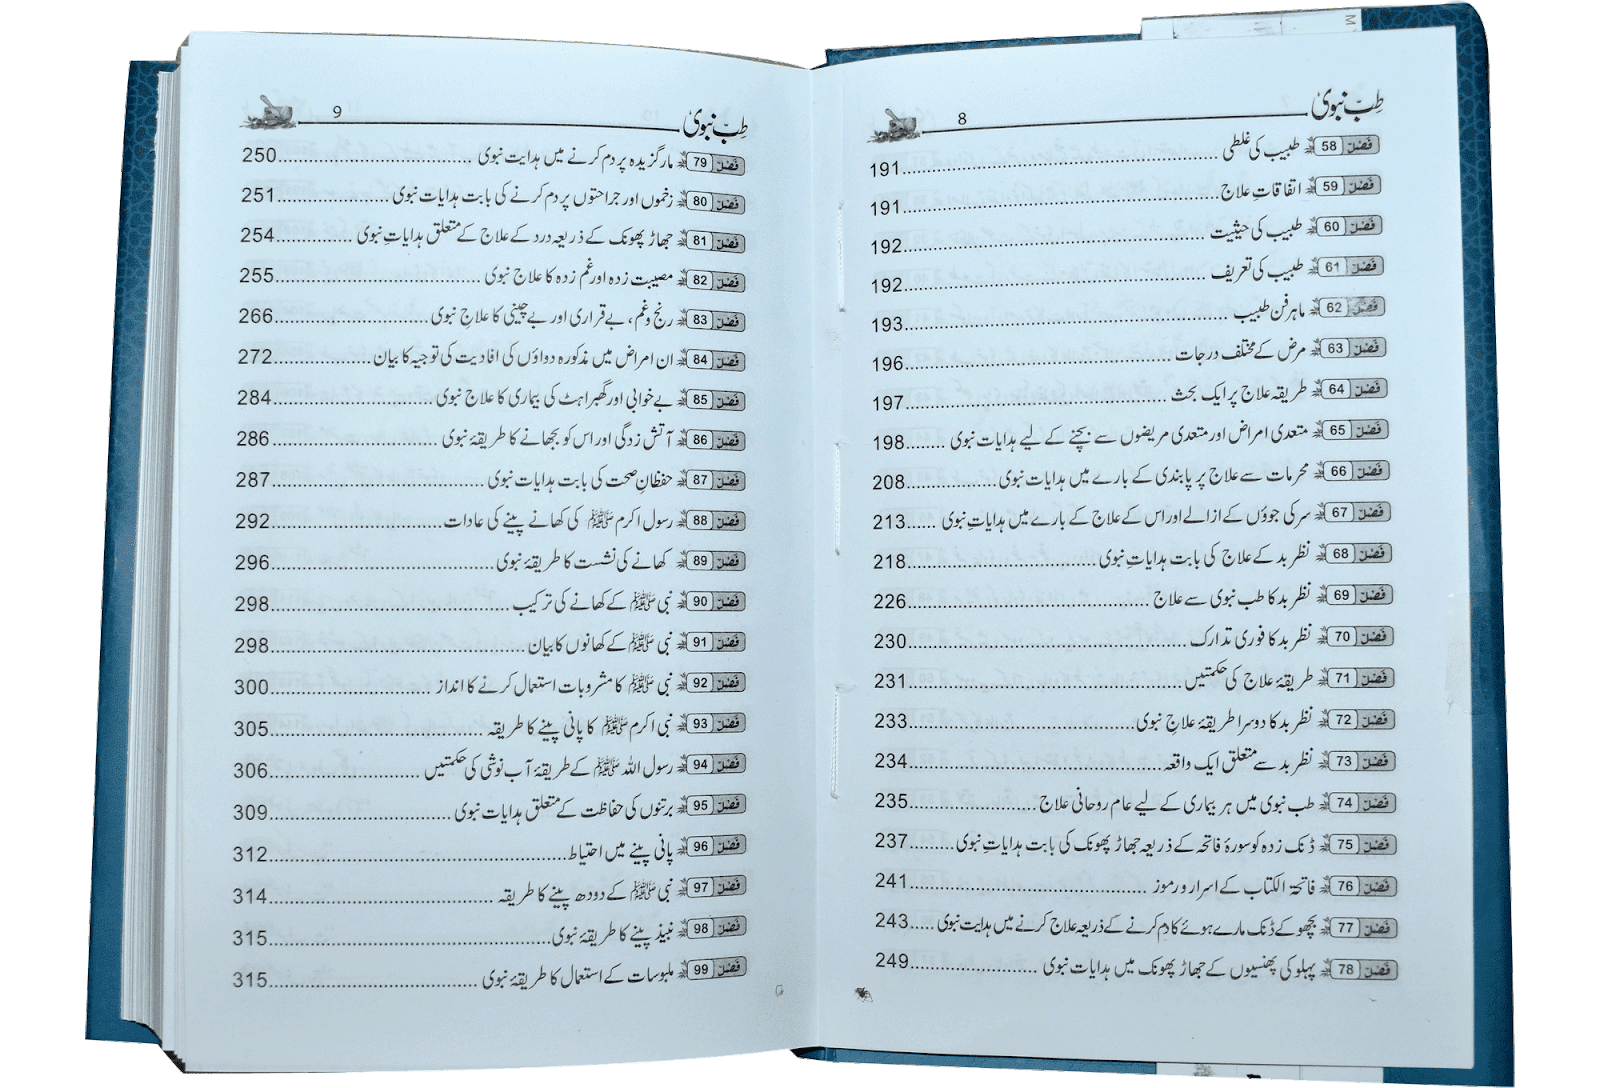 طِبِّ نبویؐ 8
فصل 58 طبیب کی غلطی 191
فصل 59 اتفاقاتِ علاج 191
فصل 60 طبیب کی حیثیت 192
فصل 61 طبیب کی تعریف 192
فصل 62 ماہر فن طبیب 193
فصل 63 مرض کے مختلف درجات 196
فصل 64 طریقہ علاج پر ایک بحث 197
فصل 65 متعدی امراض اور متعدی مریضوں سے بچنے کے لیے ہدایات نبوی 198
فصل 66 محرمات سے علاج پر پابندی کے بارے میں ہدایات نبوی 208
فصل 67 سر کی جوؤں کے ازالے اور اس کے علاج کے بارے میں ہدایاتِ نبوی 213
فصل 68 نظر بد کے علاج کی بابت ہدایاتِ نبوی 218
فصل 69 نظر بد کا طب نبوی سے علاج 226
فصل 70 نظر بد کا فوری تدارک 230
فصل 71 طریقۂ علاج کی حکمتیں 231
فصل 72 نظر بد کا دوسرا طریقۂ علاجِ نبوی 233
فصل 73 نظر بد سے متعلق ایک واقعہ 234
فصل 74 طب نبوی میں ہر بیماری کے لیے عام روحانی علاج 235
فصل 75 ڈنک زدہ کو سورۂ فاتحہ کے ذریعہ جھاڑ پھونک کی بابت ہدایاتِ نبوی 237
فصل 76 فاتحۃ الکتاب کے اسرار و رموز 241
فصل 77 بچھو کے ڈنک مارے ہوئے کا دم کرنے کے ذریعہ علاج کرنے میں ہدایت نبوی 243
فصل 78 پہلو کی پھنسیوں کے جھاڑ پھونک میں ہدایات نبوی 249
طِبِّ نبویؐ 9
فصل 79 مار گزیدہ پر دم کرنے میں ہدایت نبوی 250
فصل 80 زخموں اور جراحتوں پر دم کرنے کی بابت ہدایات نبوی 251
فصل 81 جھاڑ پھونک کے ذریعہ درد کے علاج کے متعلق ہدایاتِ نبوی 254
فصل 82 مصیبت زدہ اور غم زدہ کا علاج نبوی 255
فصل 83 رنج و غم، بے قراری اور بے چینی کا علاجِ نبوی 266
فصل 84 ان امراض میں مذکورہ دواؤں کی افادیت کی توجیہ کا بیان 272
فصل 85 بے خوابی اور گھبراہٹ کی بیماری کا علاج نبوی 284
فصل 86 آتش زدگی اور اس کو بجھانے کا طریقۂ نبوی 286
فصل 87 حفظانِ صحت کی بابت ہدایات نبوی 287
فصل 88 رسول اکرم ﷺ کی کھانے پینے کی عادات 292
فصل 89 کھانے کی نشست کا طریقۂ نبوی 296
فصل 90 نبی ﷺ کے کھانے کی ترکیب 298
فصل 91 نبی ﷺ کے کھانوں کا بیان 298
فصل 92 نبی ﷺ کا مشروبات استعمال کرنے کا انداز 300
فصل 93 نبی اکرم ﷺ کا پانی پینے کا طریقہ 305
فصل 94 رسول اللہ ﷺ کے طریقۂ آب نوشی کی حکمتیں 306
فصل 95 برتنوں کی حفاظت کے متعلق ہدایات نبوی 309
فصل 96 پانی پینے میں احتیاط 312
فصل 97 نبی ﷺ کے دودھ پینے کا طریقہ 314
فصل 98 نبیذ پینے کا طریقۂ نبوی 315
فصل 99 ملبوسات کے استعمال کا طریقۂ نبوی 315